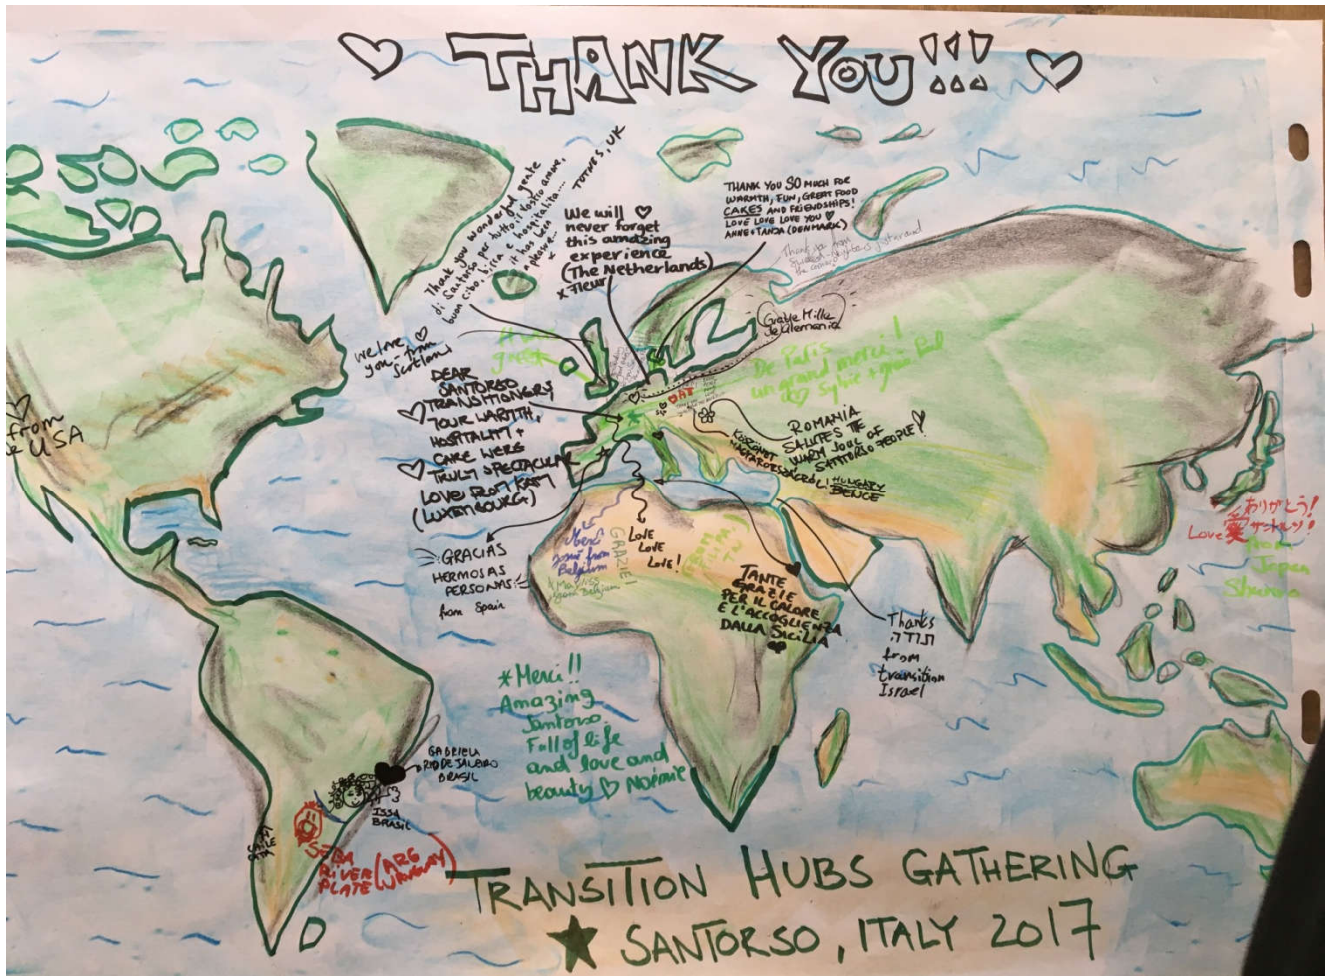 THANK YOU!!!
Thank you wonderful gente
di Santorso per tutto il vostro amore,
buon cibo, birra e hospitalita....
it has been
a pleasure...
x
TOTNES, UK
We will
never forget
this amazing
experience
(The Netherlands)
x Fleur
THANK YOU SO MUCH FOR
WARMTH, FUN, GREAT FOOD
CAKES AND FRIENDSHIPS!
LOVE LOVE LOVE YOU
ANNE+TANJA (DENMARK)
Thank you from
we love
you - from
Scotland
DEAR
SANTORSO
TRANSITIONERS
YOUR WARMTH,
HOSPITALITY +
CARE WERE
TRULY SPECTACULAR
LOVE FROM KATY
(LUXEMBOURG)
De Paris
un grand merci!
Sylvie +
ROMANIA
SALUTES THE
WARM SOUL OF
SANTORSO PEOPLE!
HUNGARY
BENCE
from
USA
GRACIAS
HERMOSAS
PERSONAS
from Spain
Merci
from
Belgium
GRAZIE!
LOVE
LOVE
LOVE!
TANTE
GRAZIE
PER IL CALORE
E L'ACCOGLIENZA
DALLA SICILIA
Thanks
תודה
from
transition
Israel
ありがとう!
Love 愛 サントルソ!
from
Japan
*Merci!!
Amazing
Santorso.
Full of life
and love and
beauty ♡ Noémie
GABRIELA
RIO DE JANEIRO
BRASIL
ISSA
BRASIL
SEBA
RIVER
PLATE
(ARG
URUGUAY)
TRANSITION HUBS GATHERING
SANTORSO, ITALY 2017